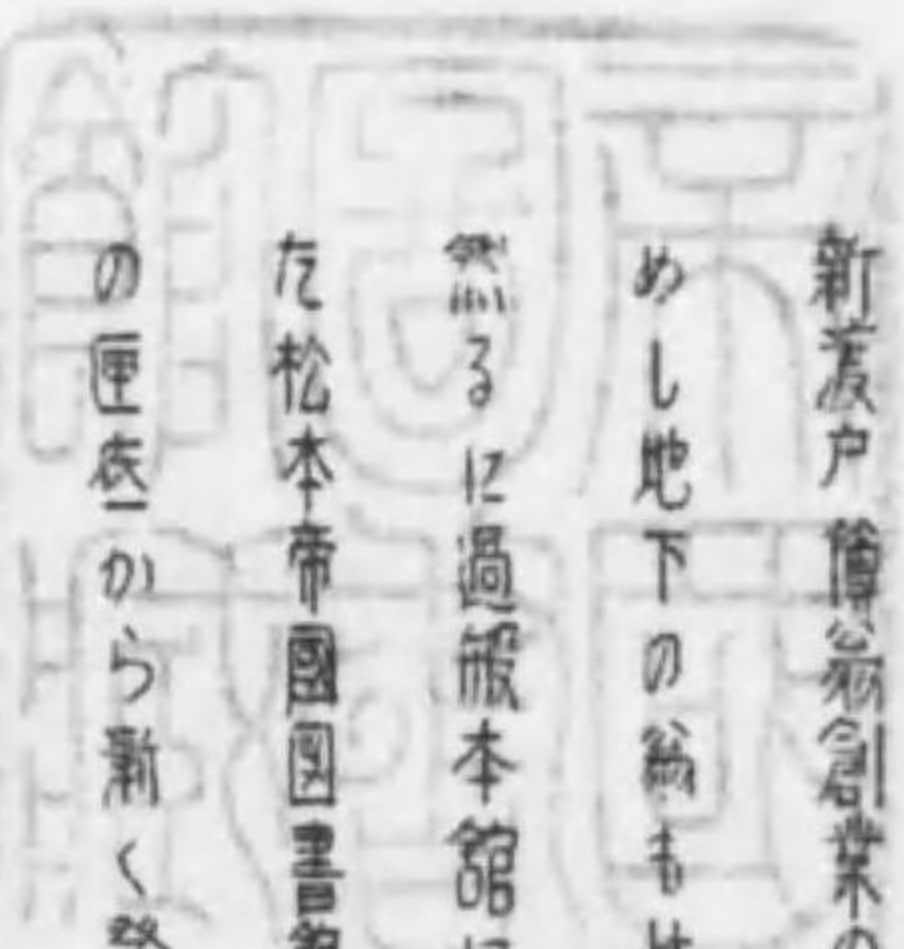 新渡戸傳翁創業の
めし地下の翁もは
然るに過般本館に
た松本帝國図書館
の匣底から新く発